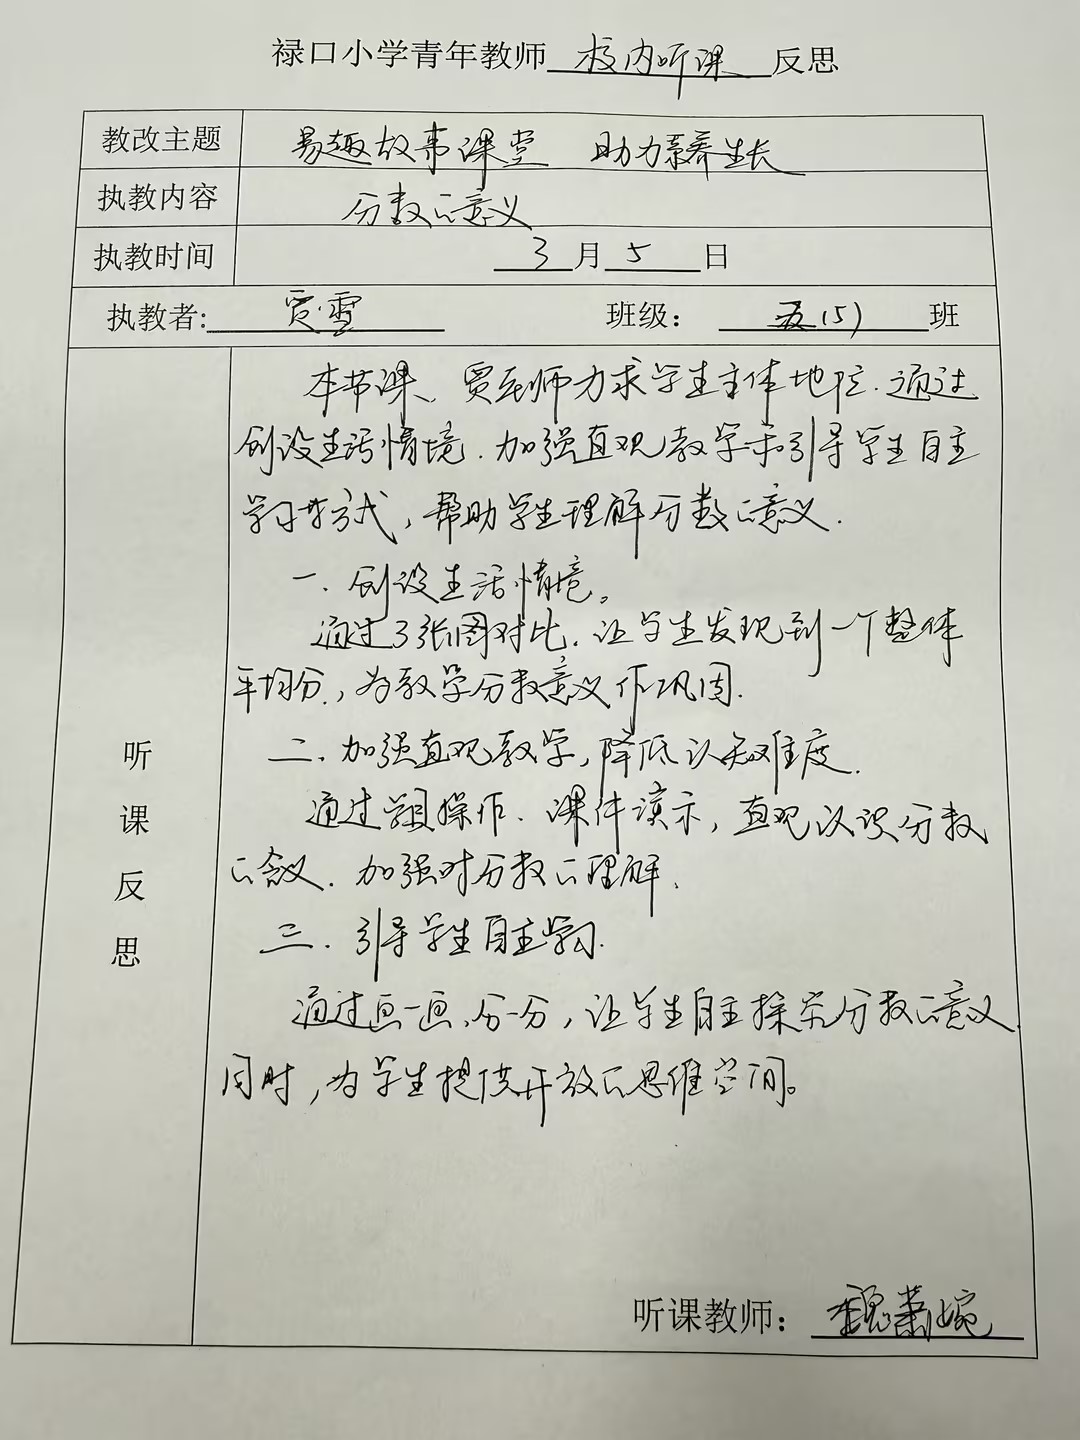 禄口小学青年教师 校内听课 反思
教改主题 易趣故事课堂 助力素养生长
执教内容 分数的意义
执教时间 3月5日
执教者: 贾雪 班级： 五(5) 班
听课反思
本节课、贾老师力求学生主体地位.通过
创设生活情境.加强直观教学和引导学生自主
学习等方式，帮助学生理解分数的意义.
一.创设生活情境。
通过3张图对比.让学生发现到一个整体
平均分，为教学分数意义作巩固.
二.加强直观教学,降低认知难度.
通过学具操作.课件演示，直观认识分数
的含义.加强对分数的理解.
三.引导学生自主学习.
通过画一画、分一分，让学生自主探究分数的意义.
同时，为学生提供开放的思维空间。
听课教师：